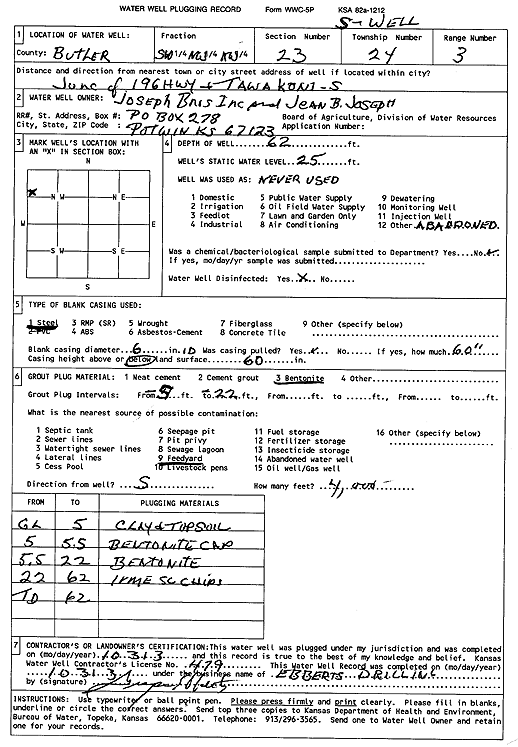 WATER WELL PLUGGING RECORD Form WWC-5P KSA 82a-1212
S-WELL
1 LOCATION OF WATER WELL: Fraction Section Number Township Number Range Number
County: BUTLER SW 1/4 NW 1/4 NW 1/4 23 24 3
Distance and direction from nearest town or city street address of well if located within city?
Junc of 196 HWY + TAWAKONI-S
2 WATER WELL OWNER: JOSEPH BRIS INC and JEAN B. JOSEPH
RR#, St. Address, Box #: PO BOX 278 Board of Agriculture, Division of Water Resources
City, State, ZIP Code : POTWIN KS 67123 Application Number:
3 MARK WELL'S LOCATION WITH AN "X" IN SECTION BOX:
N
X
N W N E
W E
S W S E
S
4 DEPTH OF WELL......62......ft.
WELL'S STATIC WATER LEVEL...25....ft.
WELL WAS USED AS: NEVER USED
1 Domestic 5 Public Water Supply 9 Dewatering
2 Irrigation 6 Oil Field Water Supply 10 Monitoring Well
3 Feedlot 7 Lawn and Garden Only 11 Injection Well
4 Industrial 8 Air Conditioning 12 Other.ABABDONED.
Was a chemical/bacteriological sample submitted to Department? Yes...No.X.
If yes, mo/day/yr sample was submitted..................
Water Well Disinfected: Yes.X.. No......
5 TYPE OF BLANK CASING USED:
1 Steel 3 RMP (SR) 5 Wrought 7 Fiberglass 9 Other (specify below)
2 PVC 4 ABS 6 Asbestos-Cement 8 Concrete Tile ......................
Blank casing diameter...6....in. ID Was casing pulled? Yes..X.. No...... If yes, how much.60"
Casing height above or below land surface.......60.....in.
6 GROUT PLUG MATERIAL: 1 Neat cement 2 Cement grout 3 Bentonite 4 Other..............
Grout Plug Intervals: From.5..ft. to.22.ft., From..... to.....ft., From..... to.....ft.
What is the nearest source of possible contamination:
1 Septic tank 6 Seepage pit 11 Fuel storage 16 Other (specify below)
2 Sewer lines 7 Pit privy 12 Fertilizer storage ......................
3 Watertight sewer lines 8 Sewage lagoon 13 Insecticide storage
4 Lateral lines 9 Feedyard 14 Abandoned water well
5 Cess Pool 10 Livestock pens 15 Oil well/Gas well
Direction from well?....S..... How many feet?
FROM TO PLUGGING MATERIALS
GL 5 CLAY & TOPSOIL
5 5.5 BENTONITE CAP
5.5 22 BENTONITE
22 62 CHIPS
TD 62
7 CONTRACTOR'S OR LANDOWNER'S CERTIFICATION: This water well was plugged under my jurisdiction and was completed
on (mo/day/year).10.31.3..... and this record is true to the best of my knowledge and belief. Kansas
Water Well Contractor's License No. .479....... This Water Well Record was completed on (mo/day/year)
..10.31.3...... under the business name of EBBERTS DRILLING
by (signature)
INSTRUCTIONS: Use typewriter or ball point pen. Please press firmly and print clearly. Please fill in blanks,
underline or circle the correct answers. Send top three copies to Kansas Department of Health and Environment,
Bureau of Water, Topeka, Kansas 66620-0001. Telephone: 913/296-3565. Send one to Water Well Owner and retain
one for your records.